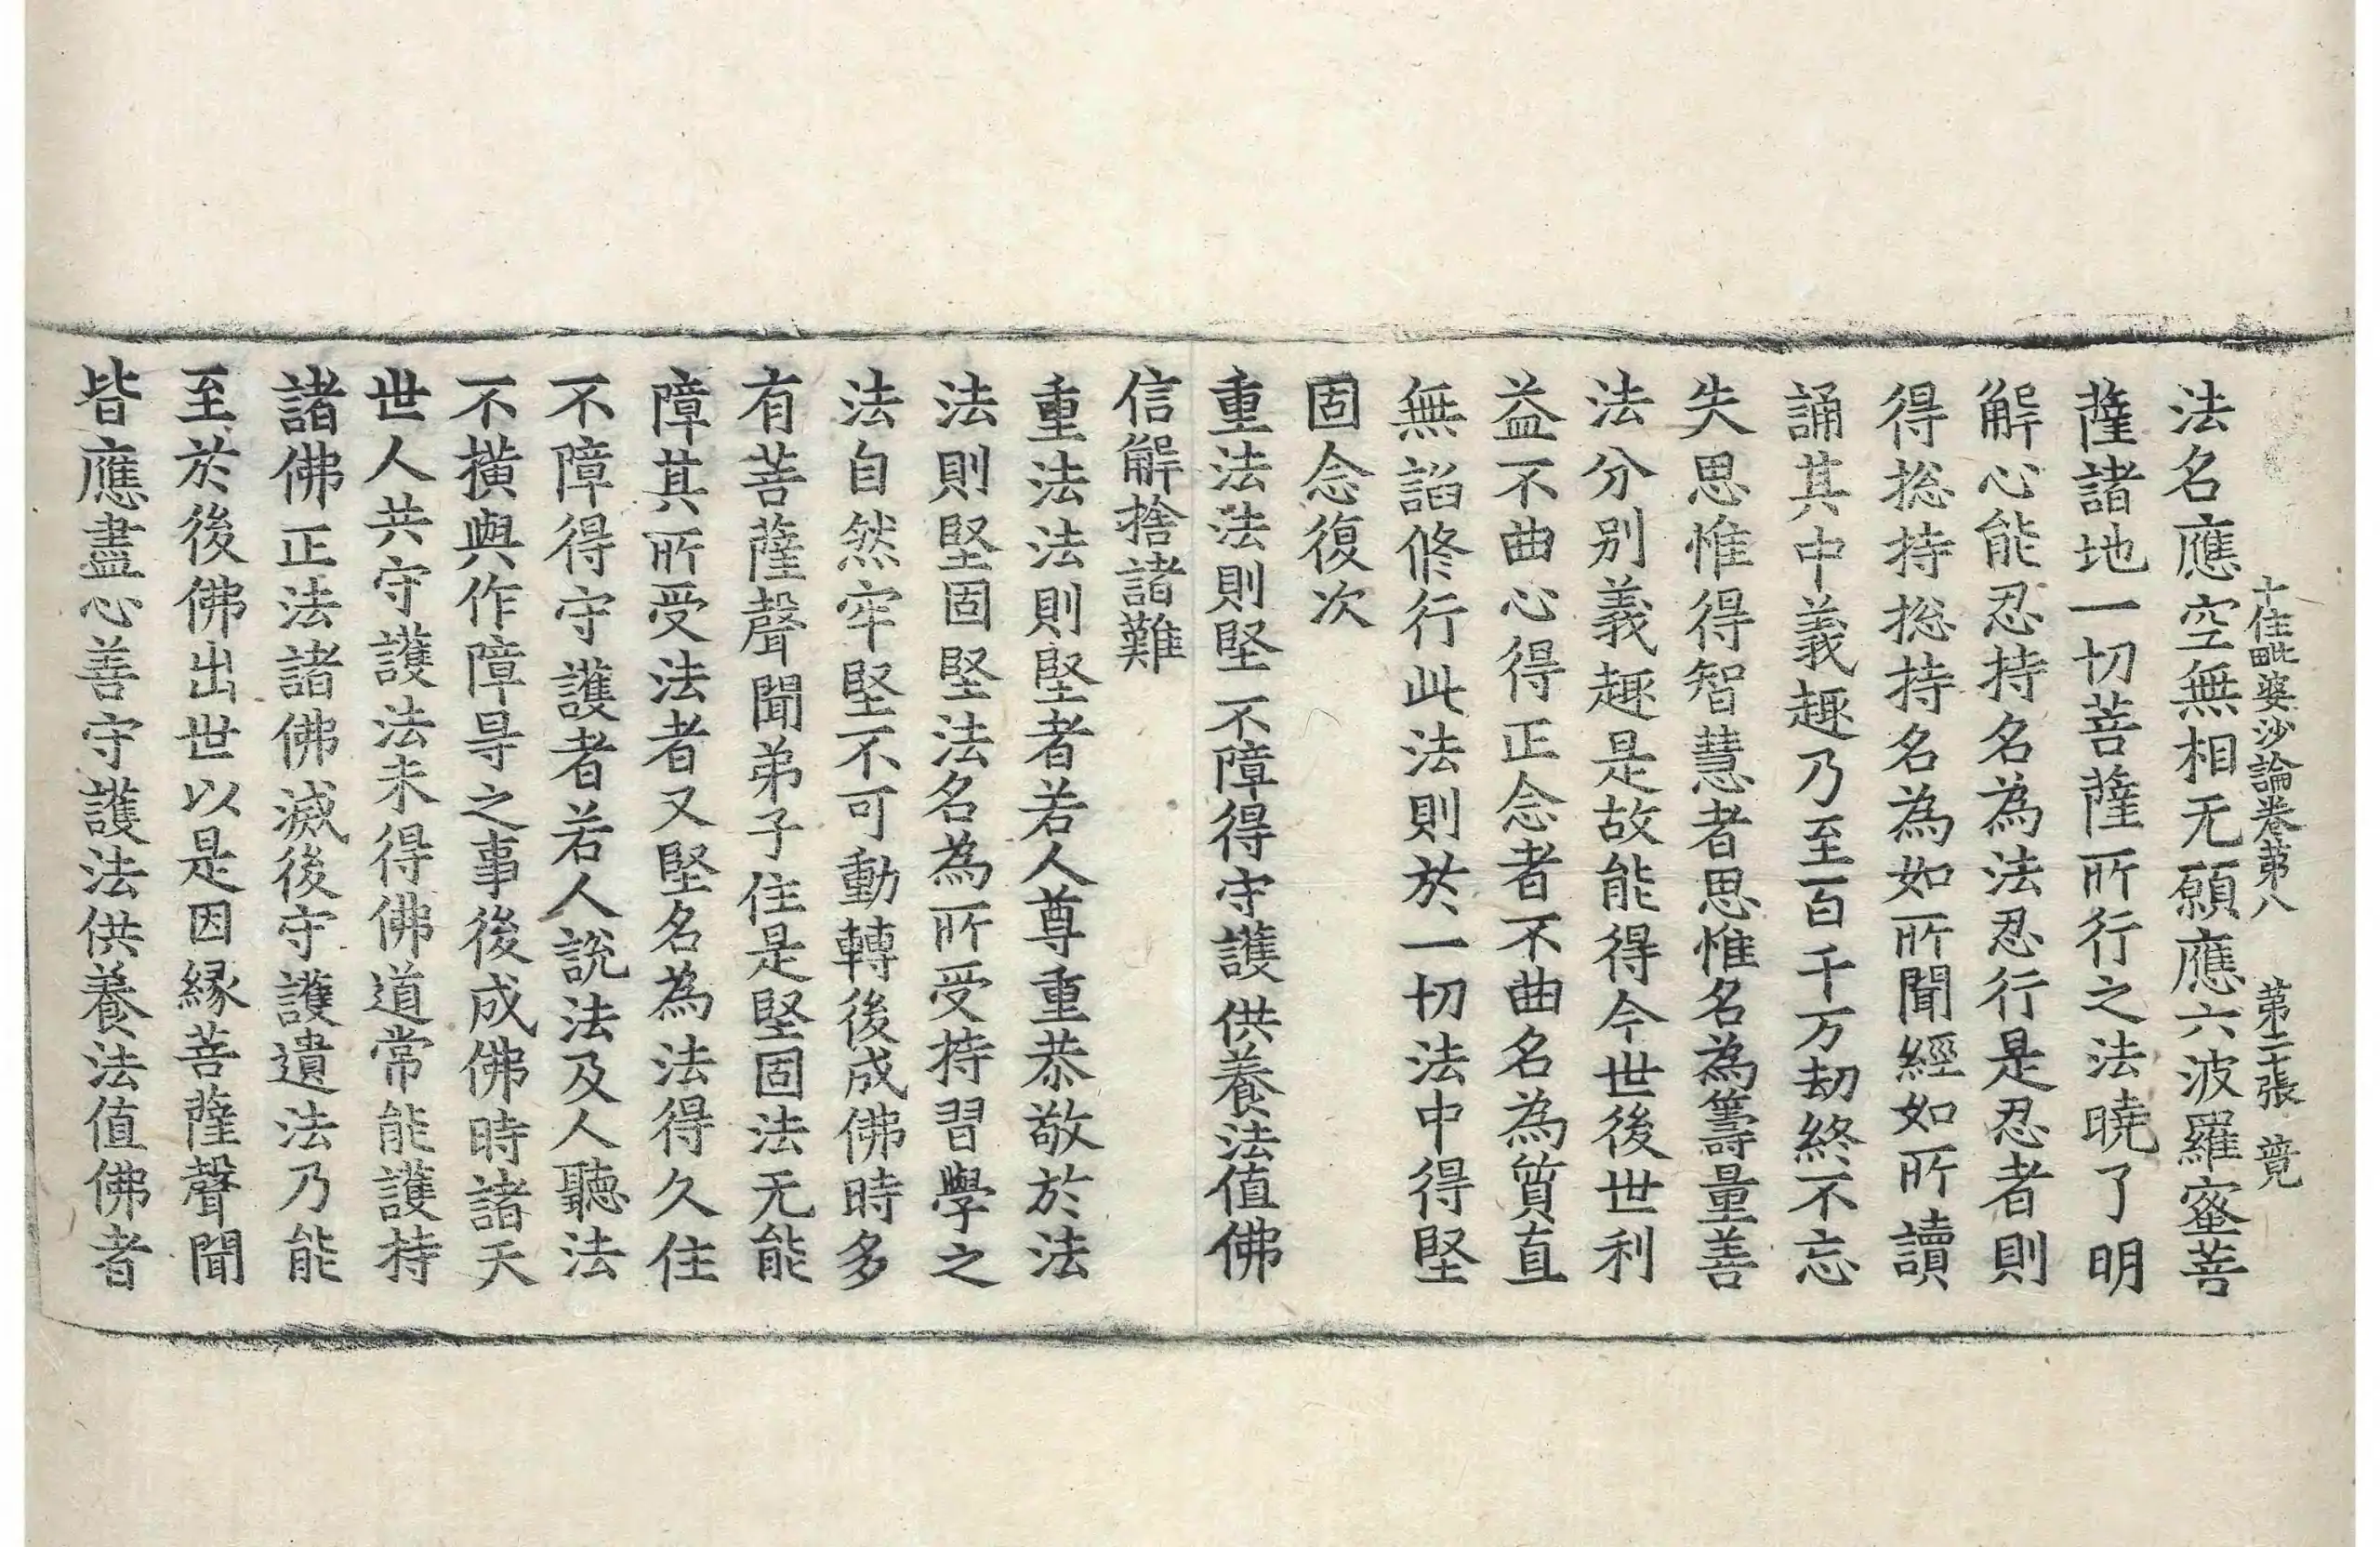 十住毗婆沙論卷第八 第二十張 竟
法名應空無相无願應六波羅蜜菩
薩諸地一切菩薩所行之法曉了明
解心能忍持名為法忍行是忍者則
得捴持捴持名為如所聞經如所讀
誦其中義趣乃至百千万劫終不忘
失思惟得智慧者思惟名為籌量善
法分別義趣是故能得今世後世利
益不曲心得正念者不曲名為質直
無諂修行此法則於一切法中得堅
固念復次
重法法則堅 不障得守護 供養法值佛
信解捨諸難
重法法則堅者若人尊重恭敬於法
法則堅固堅法名為所受持習學之
法自然牢堅不可動轉後成佛時多
有菩薩聲聞弟子住是堅固法无能
障其所受法者又堅名為法得久住
不障得守護者若人說法及人聽法
不橫與作障㝵之事後成佛時諸天
世人共守護法未得佛道常能護持
諸佛正法諸佛滅後守護遺法乃能
至於後佛出世以是因緣菩薩聲聞
皆應盡心善守護法供養法值佛者